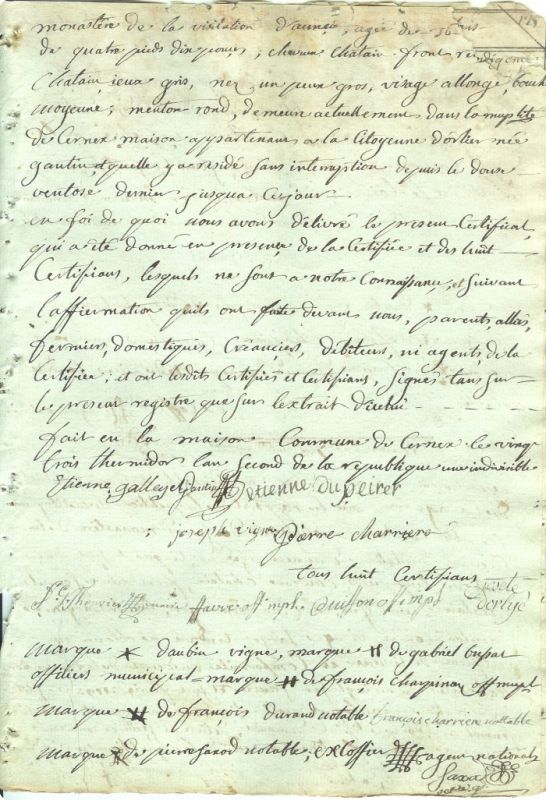 monastère de la visitation d'anneci, agée de 56 ans
de quatre pieds dix pouces, cheveux chatain front
Chatain, ieux gris, nez un peux gros, visage allongé bouche
moyenne, menton rond, demeure actuellement dans la mup^lité
de Cernex maison appartenant a la Citoyenne d'orlier née
gantin, et quelle y a residé sans interruption depuis le douze
ventose dernier jusqua Cejour
en foi de quoi nous avons délivré le present Certificat,
qui a été donné en presence de la Certifiée et des huit
Certifians, lesquels ne sont a notre Connaissance, et suivant
l'affirmation quils ont faite devant nous, parents, alliés,
fermiers, domestiques, Créanciers, débiteurs, ni agents de la
Certifiée; et ont lesdits Certifiés et Certifians, signés tans sur
le present registre que sur lextrait d'icelui
fait en la maison Commune de Cernex le vingt
trois thermidor lan second de la republique une indivisible
Etienne galley etienne dupeirer
joseph vigne pierre charriere
tous huit Certifians
marque d'aubin vigne, marque de gabriel bussat
officiers municipal = marque de françois Charpinaz off mupl
marque de françois durand notable françois charriere notable
marque de pierre saxod notable; agent national
Saxod